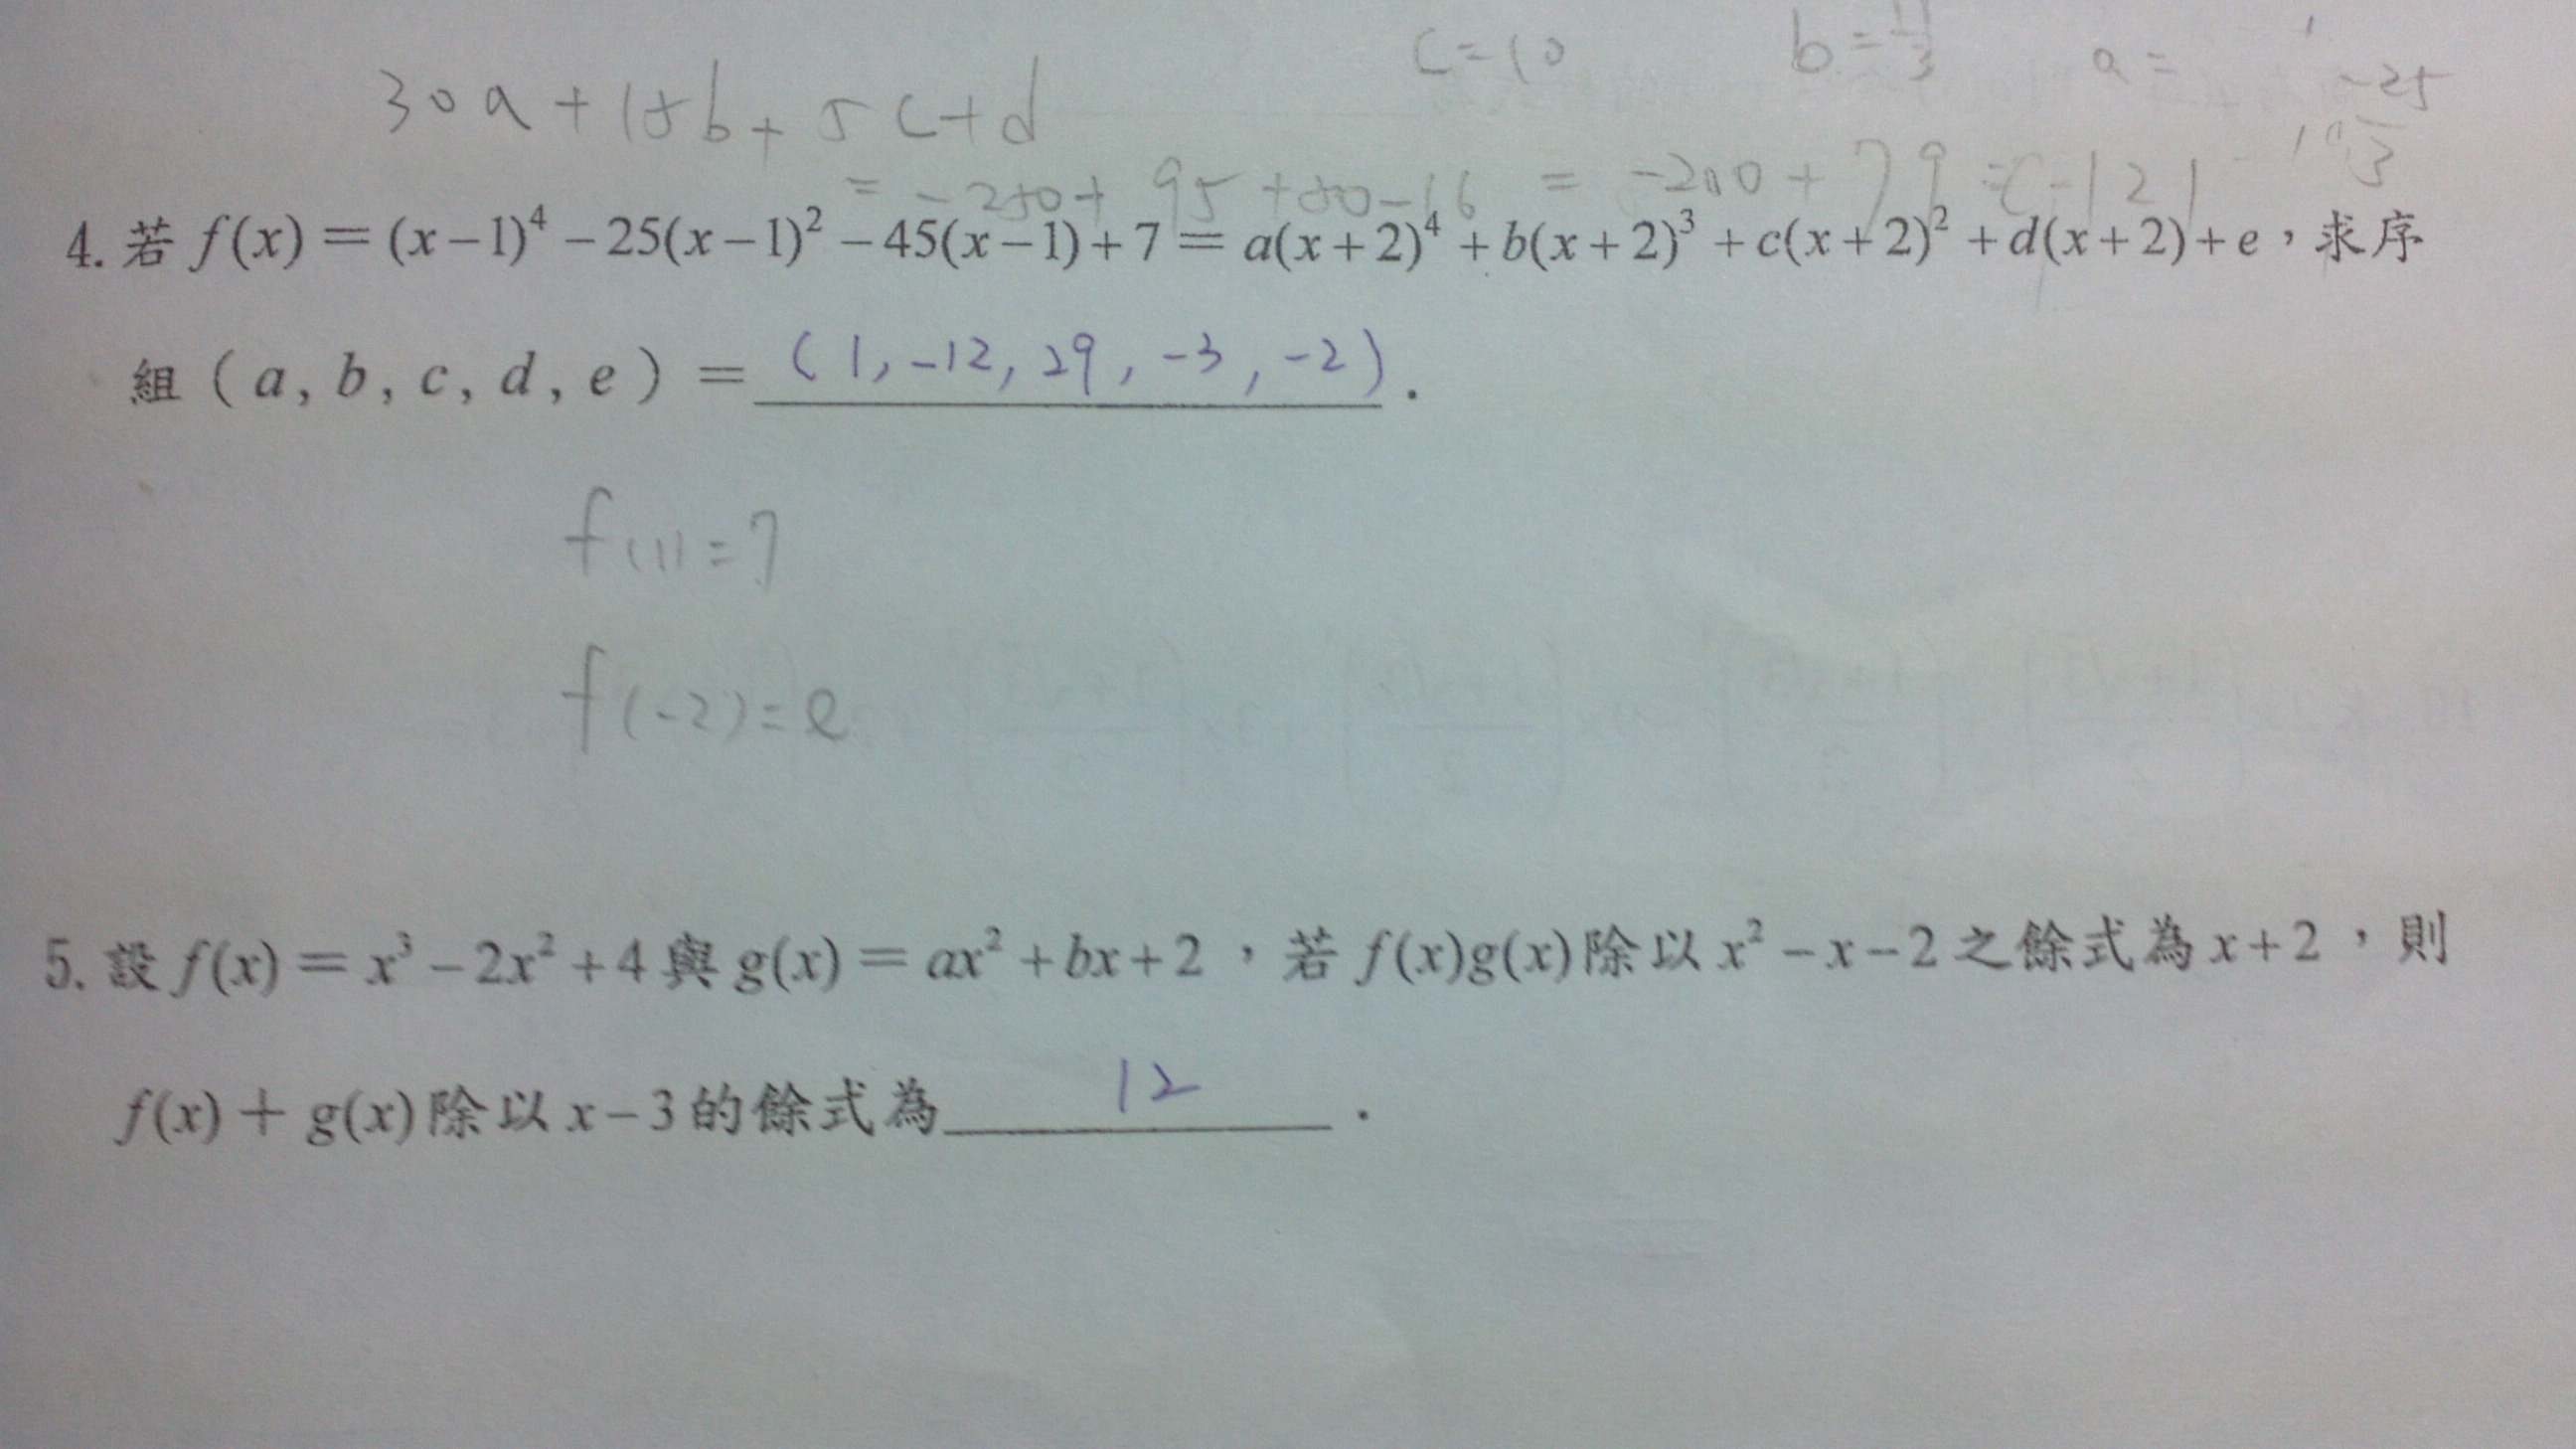 c=10 b= a= -25
30a+15b+5c+d
= -250+ 95 +50-16 = -200+79 = -121
4. 若 f(x)=(x-1)⁴-25(x-1)²-45(x-1)+7=a(x+2)⁴+b(x+2)³+c(x+2)²+d(x+2)+e，求序
組(a, b, c, d, e)= (1, -12, 29, -3, -2).
f(1)=7
f(-2)=e
5. 設 f(x)=x³-2x²+4與 g(x)=ax²+bx+2，若 f(x)g(x)除以 x²-x-2之餘式為 x+2，則
f(x)+g(x)除以 x-3的餘式為 12 .